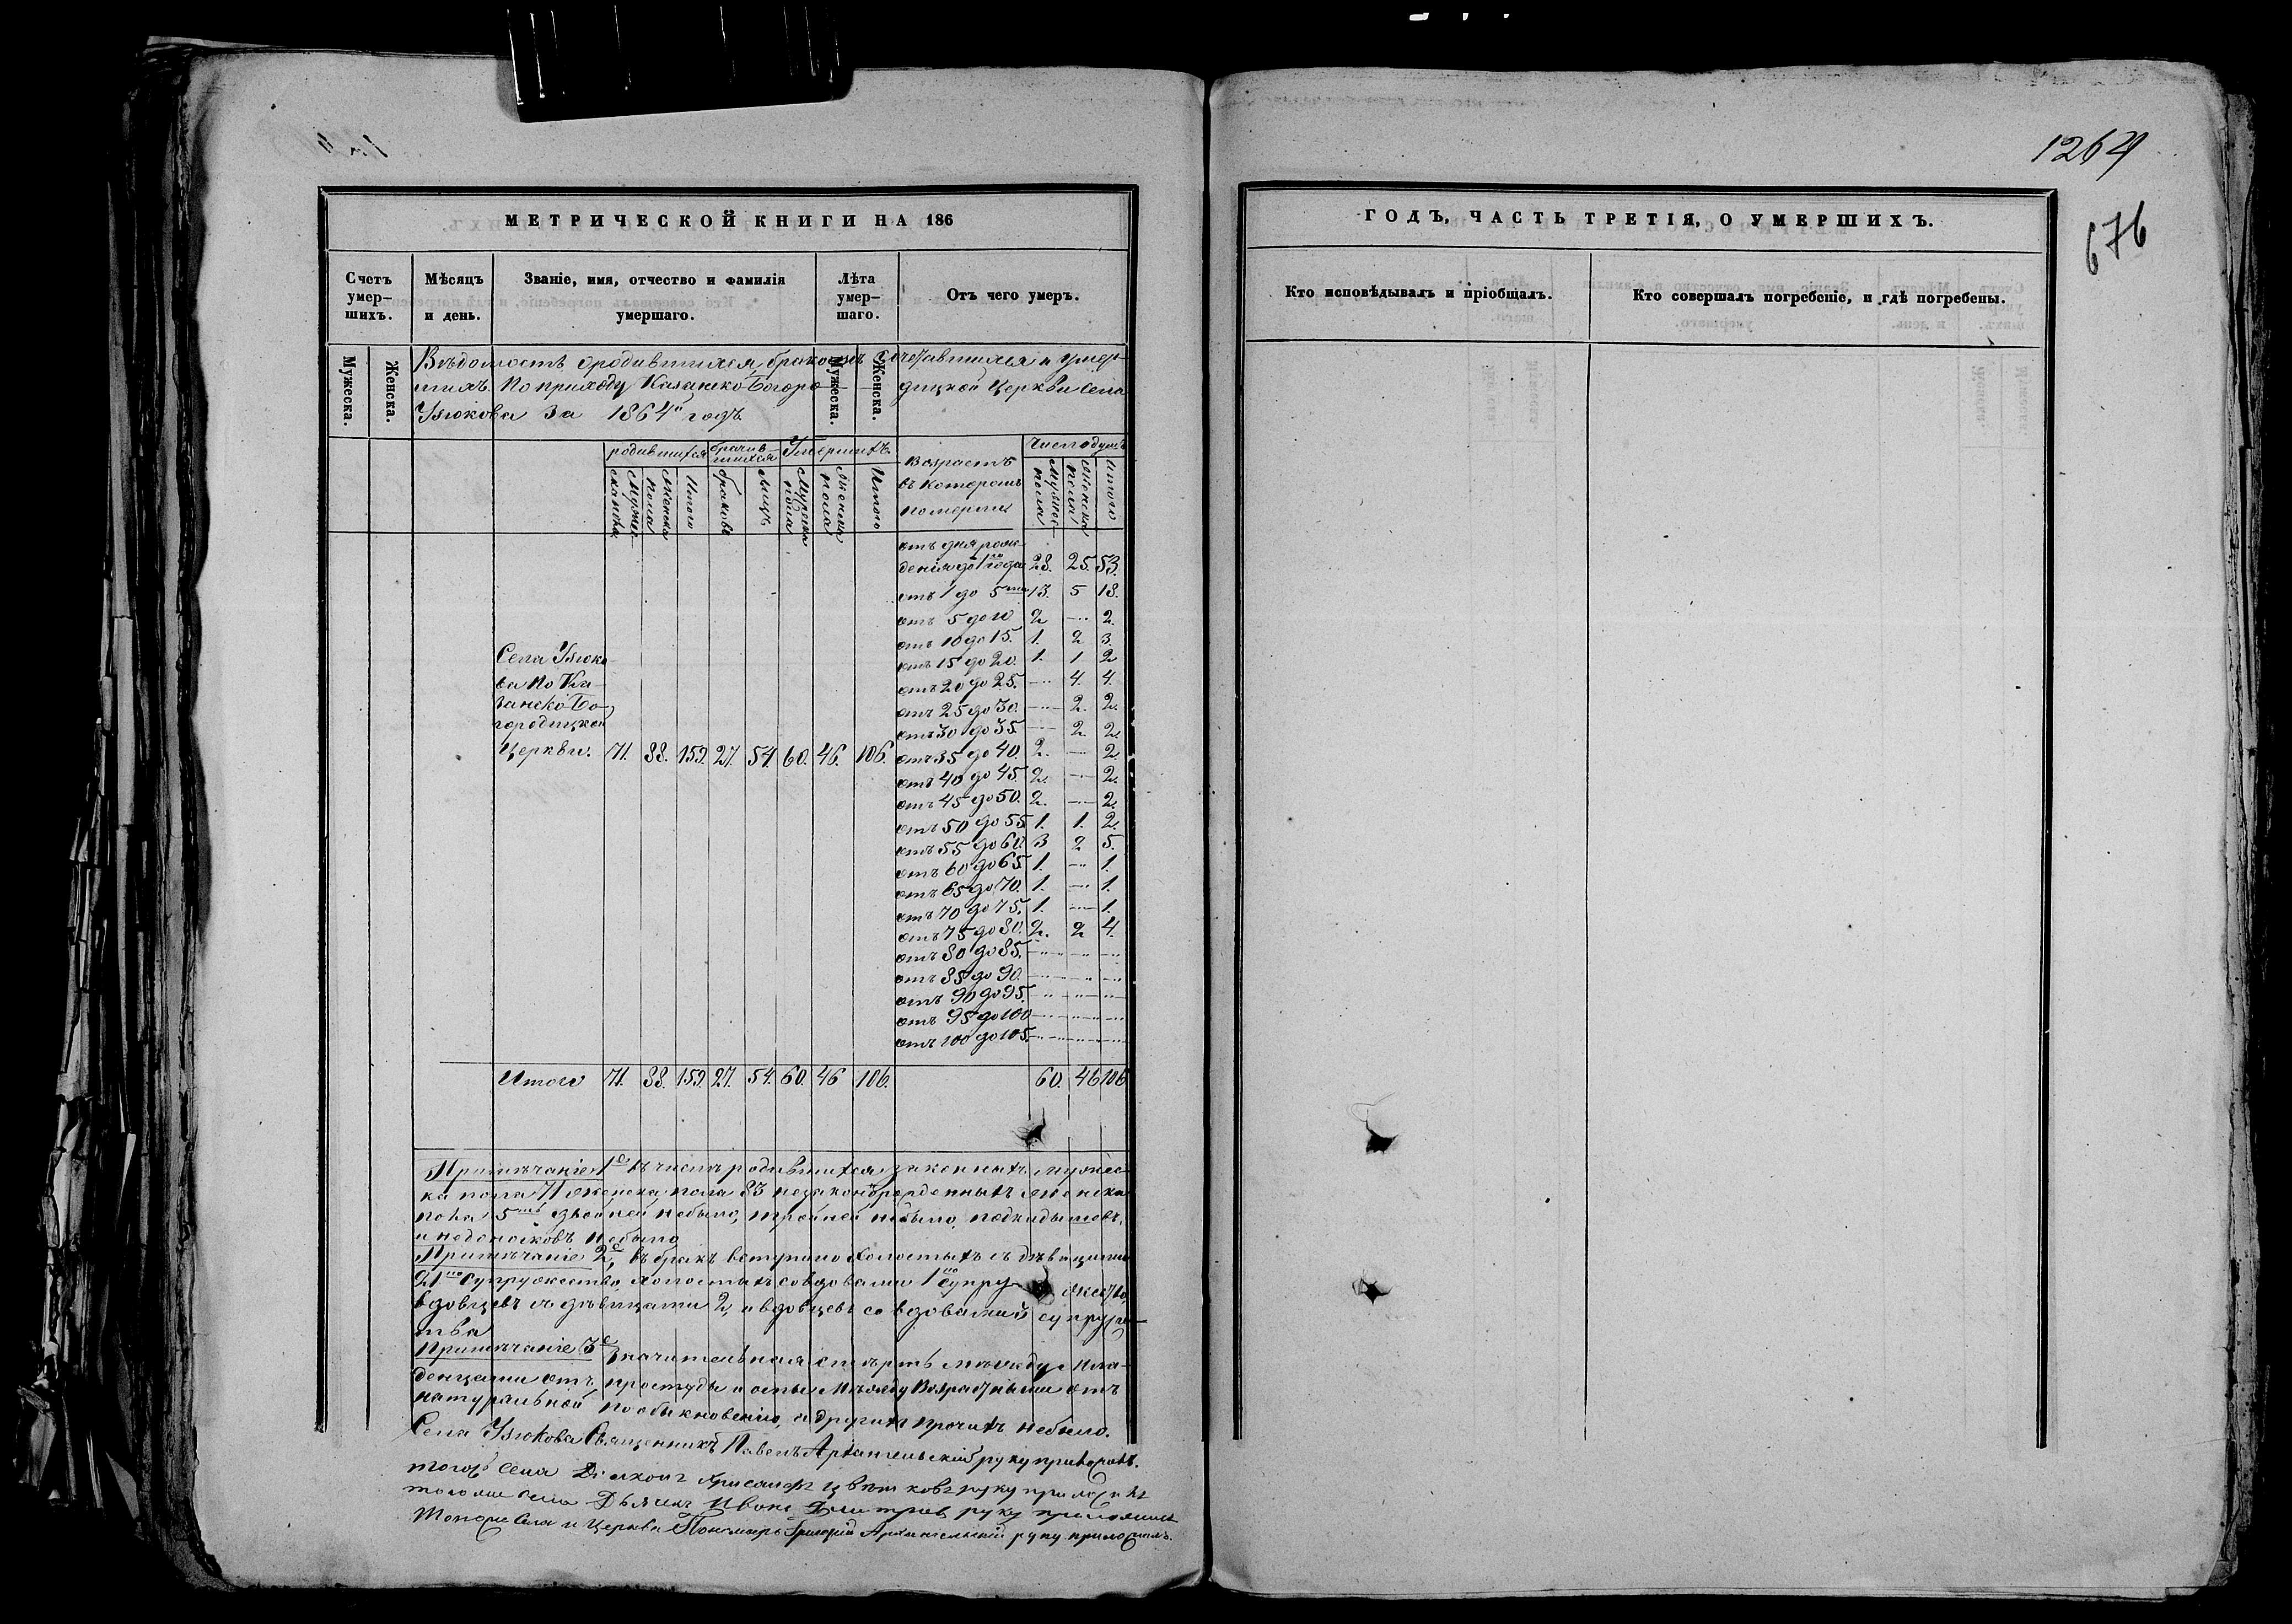 МЕТРИЧЕСКОЙ КНИГИ НА 186
Счетъ умер-
шихъ.
Мѣсяцъ
и день.
Званіе, имя, отчество и фамилія
умершаго.
Лѣта
умер-
шаго.
Отъ чего умеръ.
Мужеска.
Женска.
Мужеска.
Женска.
Вѣдомость о родившихся, бракомъ сочетавшихся и умер-
шихъ по приходу Казанско-Богоро-
дицкой Церкви Села
Узюкова за 1864й годъ
родившихся
бračив
шихся
Умершихъ
Возрастъ
въ котором
померли
Число душъ
Мужеска пола
Женска пола
Итого
браковъ
лицъ
Мужеска пола
Женска пола
Итого
Мужес. пола
Женска пола
Итого
отъ дня рож-
денія до 1го года 28. 25. 53.
отъ 1 до 5ти 13. 5 18.
отъ 5 до 10 2 — 2.
отъ 10 до 15. 1. 2 3.
отъ 15 до 20. 1. 1 2
отъ 20 до 25. — 4. 4.
отъ 25 до 30. — 2. 2.
отъ 30 до 35. — 2. 2.
отъ 35 до 40. 2. — 2.
отъ 40 до 45. 2. — 2.
отъ 45 до 50. 2. — 2.
отъ 50 до 55 1. 1. 2.
отъ 55 до 60. 3 2 5.
отъ 60 до 65. 1. — 1.
отъ 65 до 70. 1. — 1.
отъ 70 до 75. 1. — 1.
отъ 75 до 80. 2. 2 4.
отъ 80 до 85. — — —
отъ 85 до 90. — — —
отъ 90 до 95. — — —
отъ 95 до 100 — — —
отъ 100 до 105. — — —
Села Узюко-
ва по Ка-
занско-Бо-
городицкой
Церкви. 71. 88. 159. 27. 54. 60. 46. 106.
Итого 71. 88. 159. 27. 54. 60. 46 106. 60. 46 106
Примѣчаніе 1е въ числѣ родившихся законныхъ мужес-
ка пола 71 женска пола 83 незаконорожденныхъ женска
пола 5ть двойней небыло, тройней небыло, подкидышовъ,
и недоносковъ небыло
Примѣчаніе 2е, въ бракъ вступило холостыхъ съ дѣвицами
21но супружество, холостыхъ со вдовами 1но супру- жество,
вдовцевъ съ дѣвицами 2, и вдовцевъ со вдовами 3 супруже-
ства
Примѣчаніе 3е Значительная смерть между мла-
денцами отъ простуды и оспы между Возрастными отъ
натуральной по обыкновенію, а другихъ прочихъ небыло.
Села Узюкова Священникъ Павелъ Архангельскій руку приложилъ.
тогожъ Села Діаконъ Хрисанфъ Цвѣтковъ руку приложилъ
тогоже села Дьячекъ Иванъ Дмитріев руку приложилъ
Тогоже Села и Церкви Пономарь Григорій Архангельскій руку приложилъ.
1264
676
ГОДЪ, ЧАСТЬ ТРЕТІЯ, О УМЕРШИХЪ.
Кто исповѣдывалъ и пріобщалъ.
Кто совершалъ погребеніе, и гдѣ погребены.